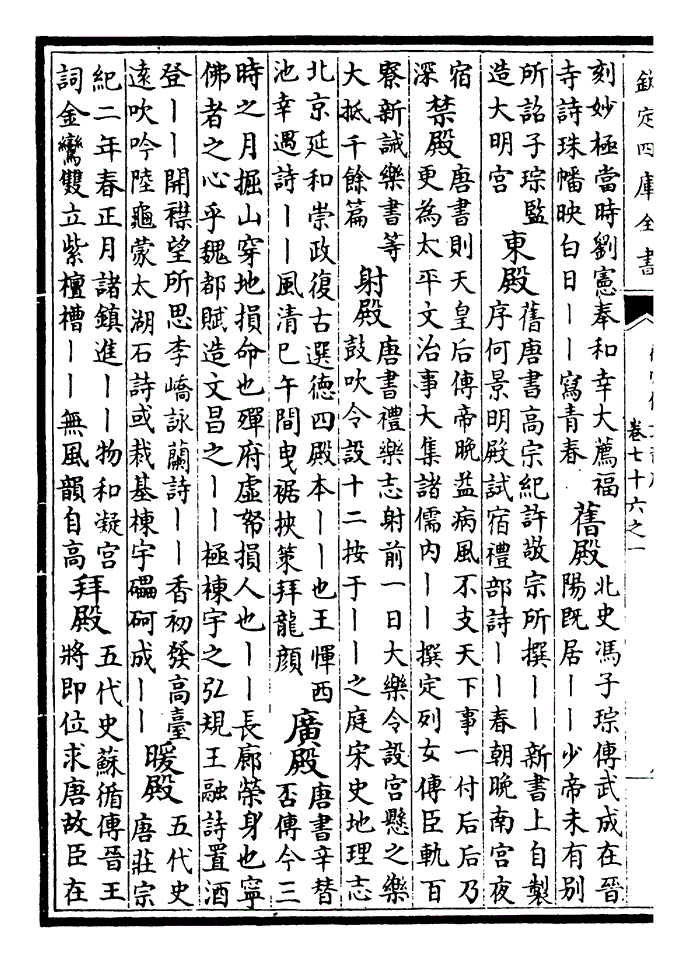 欽定四庫全書
卷七十六之一
刻妙極當時劉憲奉和幸大薦福
寺詩珠幡映白日丨丨寫青春
舊殿
北史馮子琮傳武成在晉
陽既居丨丨少帝未有别
所詔子琮監
造大明宫
東殿
舊唐書高宗紀許敬宗所撰丨丨新書上自製
序何景明殿試宿禮部詩丨丨春朝晚南宫夜
宿
深
禁殿
唐書則天皇后傳帝晚益病風不支天下事一付后后乃
更為太平文治事大集諸儒内丨丨撰定列女傳臣軌百
寮新誡樂書等
大抵千餘篇
射殿
唐書禮樂志射前一日大樂令設宫懸之樂
鼓吹令設十二按于丨丨之庭宋史地理志
北京延和崇政復古選德四殿本丨丨也王惲西
池幸遇詩丨丨風清巳午間曳裾挾策拜龍顔
廣殿
唐書辛替
否傳今三
時之月掘山穿地損命也殫府虚帑損人也丨丨長廊榮身也寧
佛者之心乎魏都賦造文昌之丨丨極棟宇之弘規王融詩置酒
登丨丨開襟望所思李嶠詠蘭詩丨丨香初發高臺
遠吹吟陸龜蒙太湖石詩或栽基棟宇礧砢成丨丨
暖殿
五代史
唐莊宗
紀二年春正月諸鎮進丨丨物和凝宫
詞金鸞雙立紫檀槽丨丨無風韻自高
拜殿
五代史蘇循傳晉王
將即位求唐故臣在